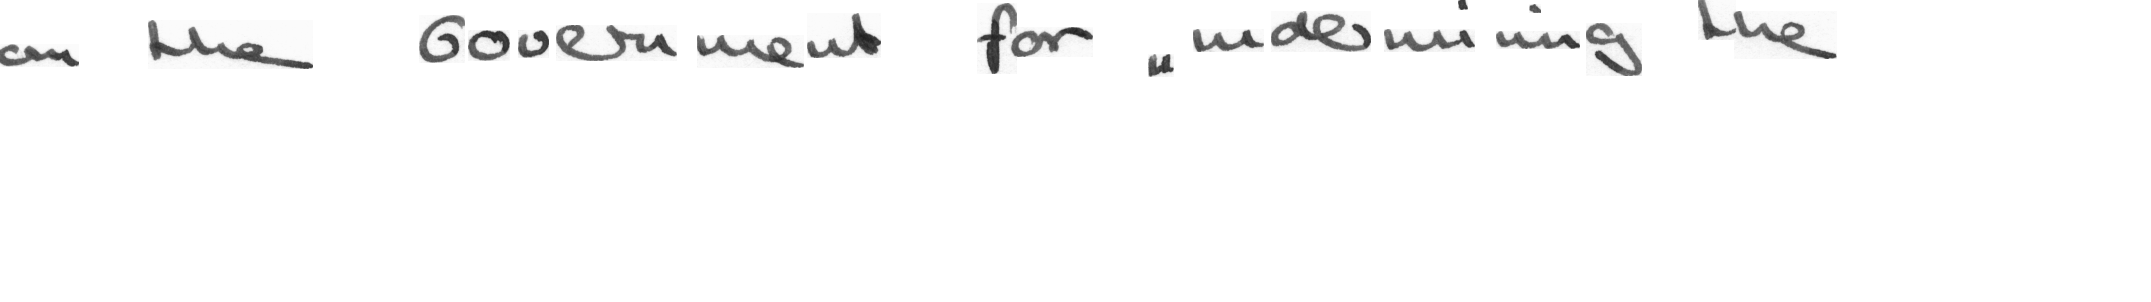 on the Government for "undermining the